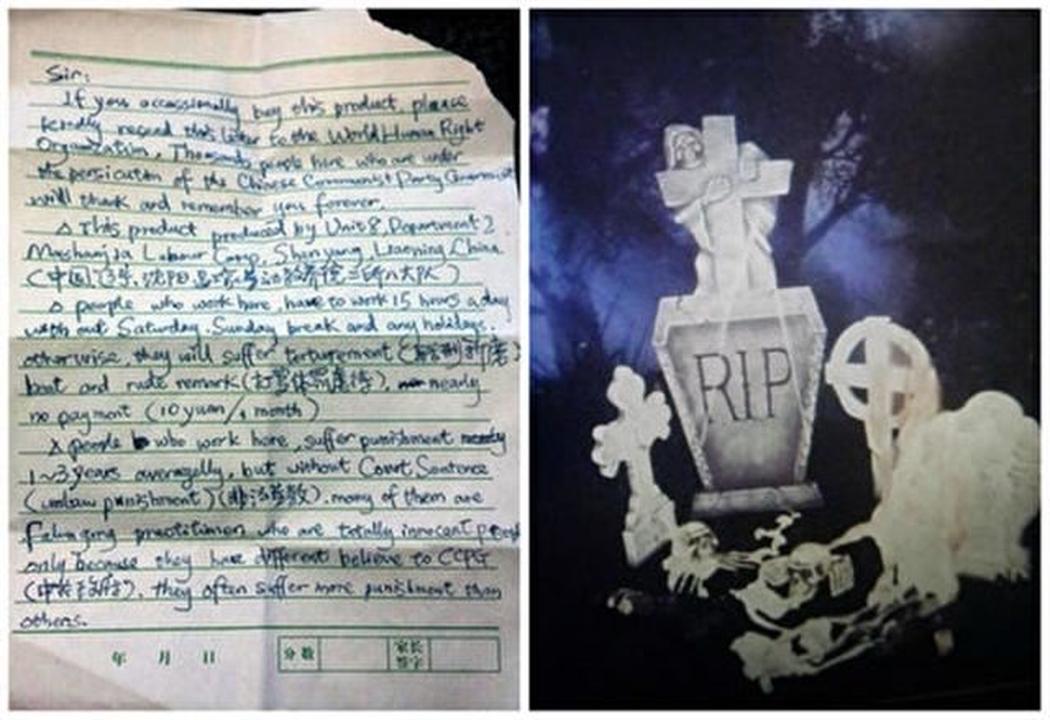 Sir:
If you occassionally buy this product, please
kindly resend this letter to the World Human Right
Organization. Thousands people here who are under
the persicution of the Chinese Communist Party Government
will thank and remember you forever.
△ This product produced by Unit 8, Department 2
Mashanjia Labour Camp, Shenyang, Liaoning, China
(中国, 辽宁, 沈阳 马三家劳动教养院二所八大队)
△ people who work here, have to work 15 hours a day
with out Saturday, Sunday break and any holidays.
otherwise, they will suffer torturement (酷刑折磨)
beat and rude remark (打骂体罚虐待), nearly
no payment (10 yuan/1 month)
X people who work here, suffer punishment nearly
1~3 years averagelly, but without Court Sentence
(unlaw punishment) (非法劳教). many of them are
Falun gong practitioner, who are totally innocent people
only because they have different believe to CCPG
they often suffer more punishment than
others.
年 月 日
分数 家长
签字
RIP